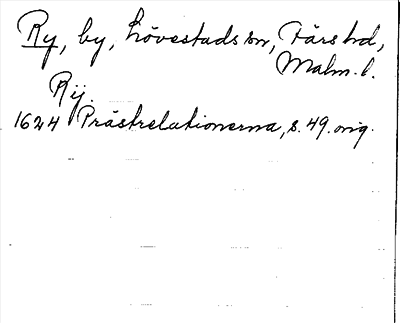 Ry, by, Lövestads sn, Färs hd,
Malm. l.
Rÿ.
1624 Prästrelationerna, s. 49. orig.